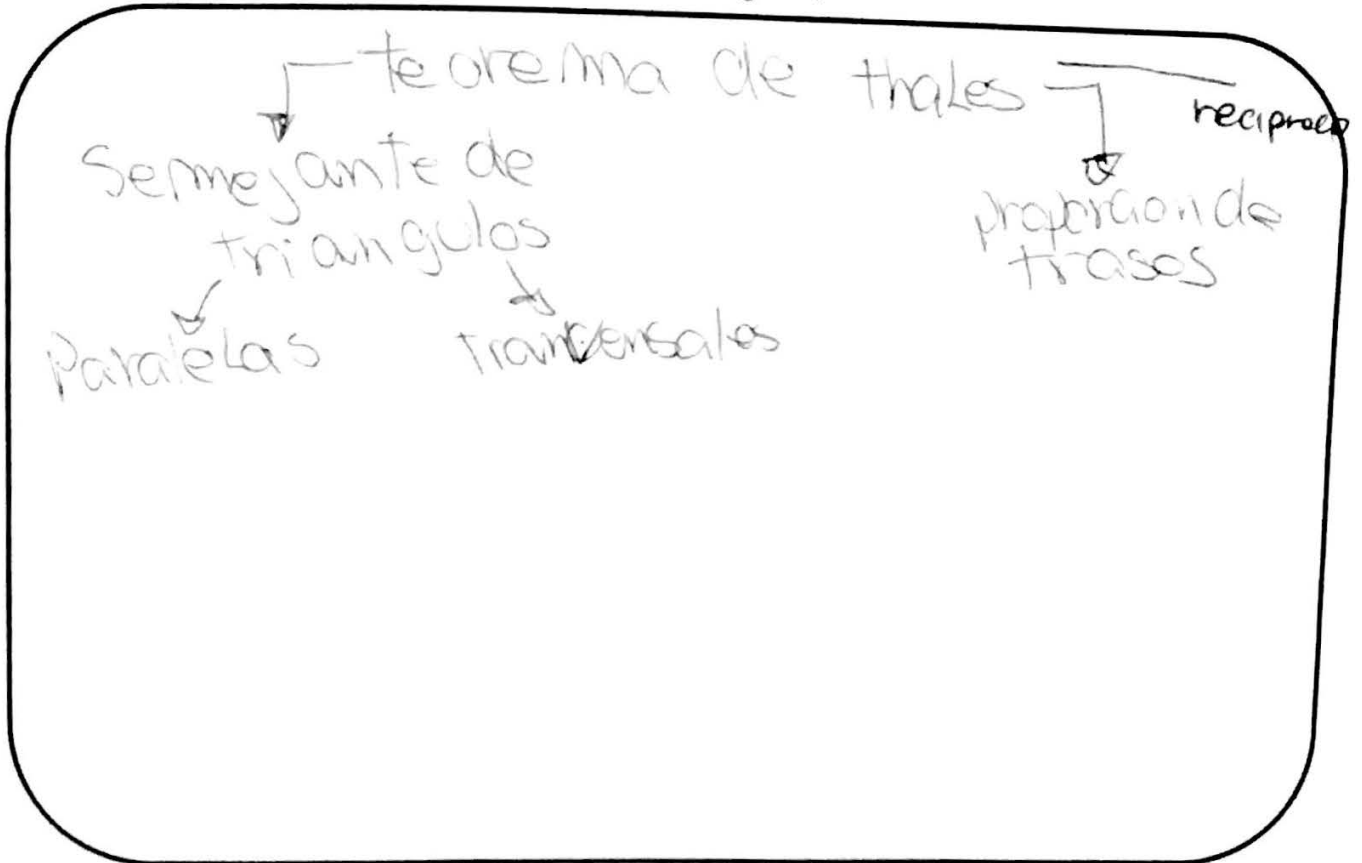 teorema de thales
reciproco
Semejante de
triangulos
proporcion de
trasos
Paralelas
tranversales